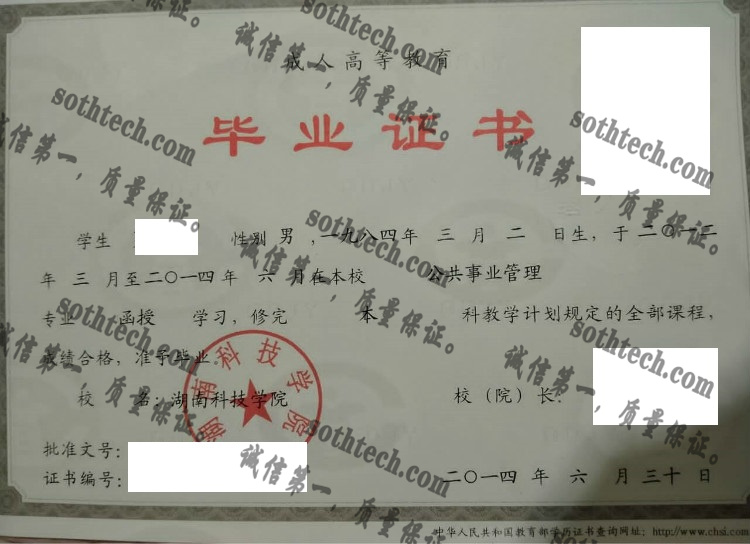 成人高等教育
毕业证书
学生 性别 男 ,一九八四年 三 月 二 日生, 于 二〇一二
年 三 月至二〇一四年 六 月在本校 公共事业管理
专业 函授 学习, 修完 本 科教学计划规定的全部课程,
成绩合格, 准予毕业.
校 名: 湖南科技学院 校（院）长:
湖南科技学院
批准文号:
证书编号: 二〇一四 年 六 月 三十 日
中华人民共和国教育部学历证书查询网址: http://www.chsi.com
sothtech.com
诚信第一，质量保证。
sothtech.com
诚信第一，质量保证。
sothtech.com
诚信第一，质量保证。
sothtech.com
诚信第一，质量保证。
sothtech.com
诚信第一，质量保证。
sothtech.com
诚信第一，质量保证。
sothtech.com
诚信第一，质量保证。
sothtech.com
诚信第一，质量保证。